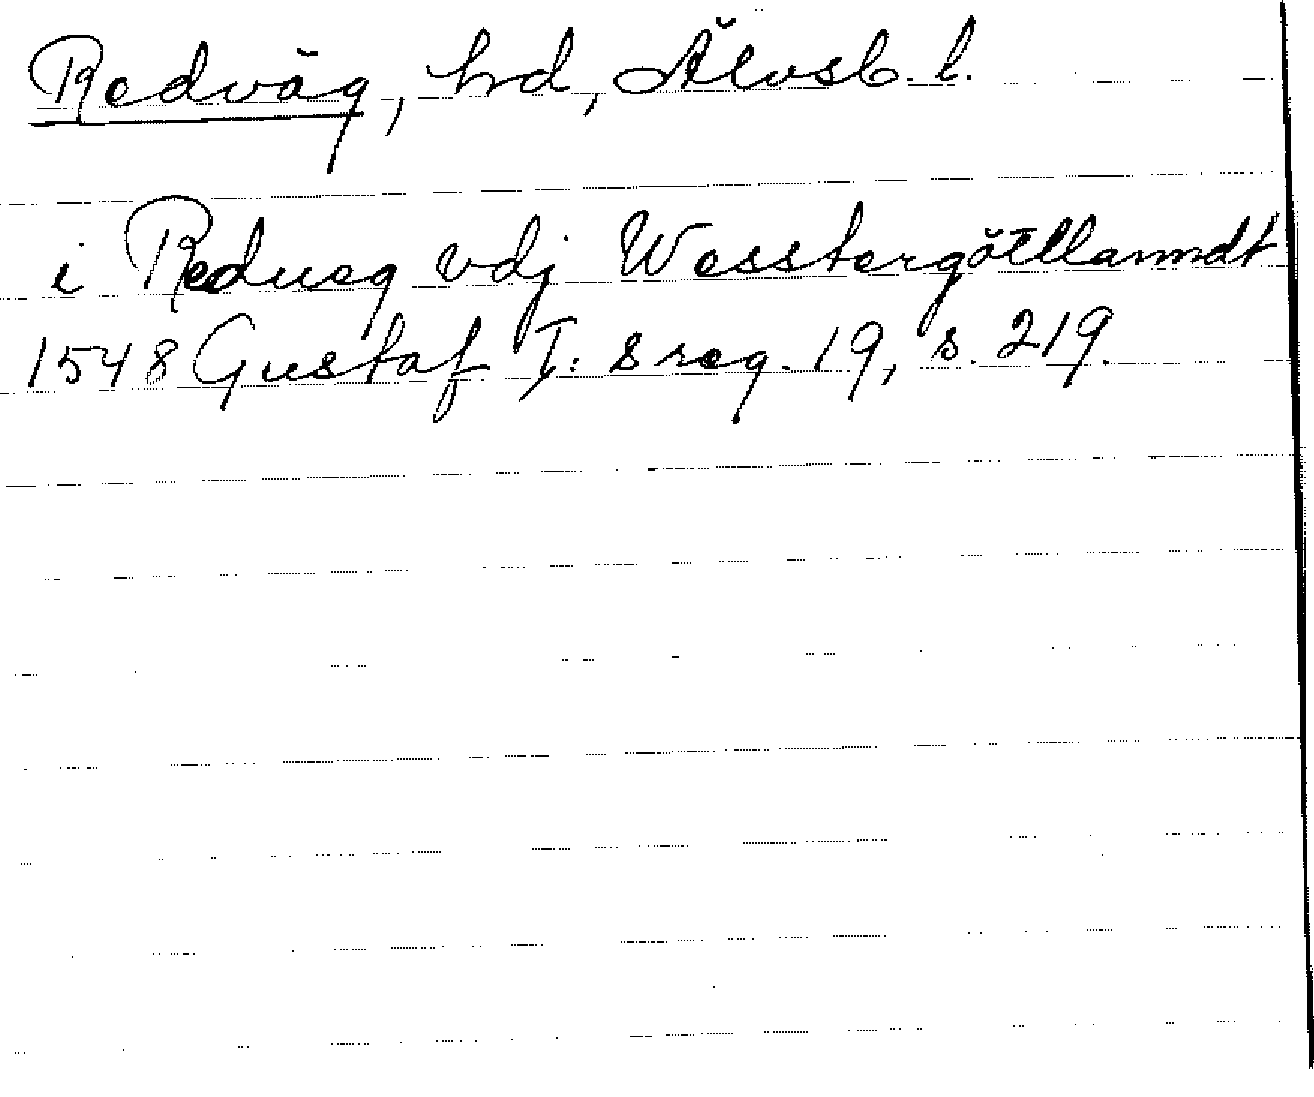 Redväg, hd, Älvsb. l.
i Redueg vdj Wesstergötllanndt
1548 Gustaf I: s reg. 19, s. 219.